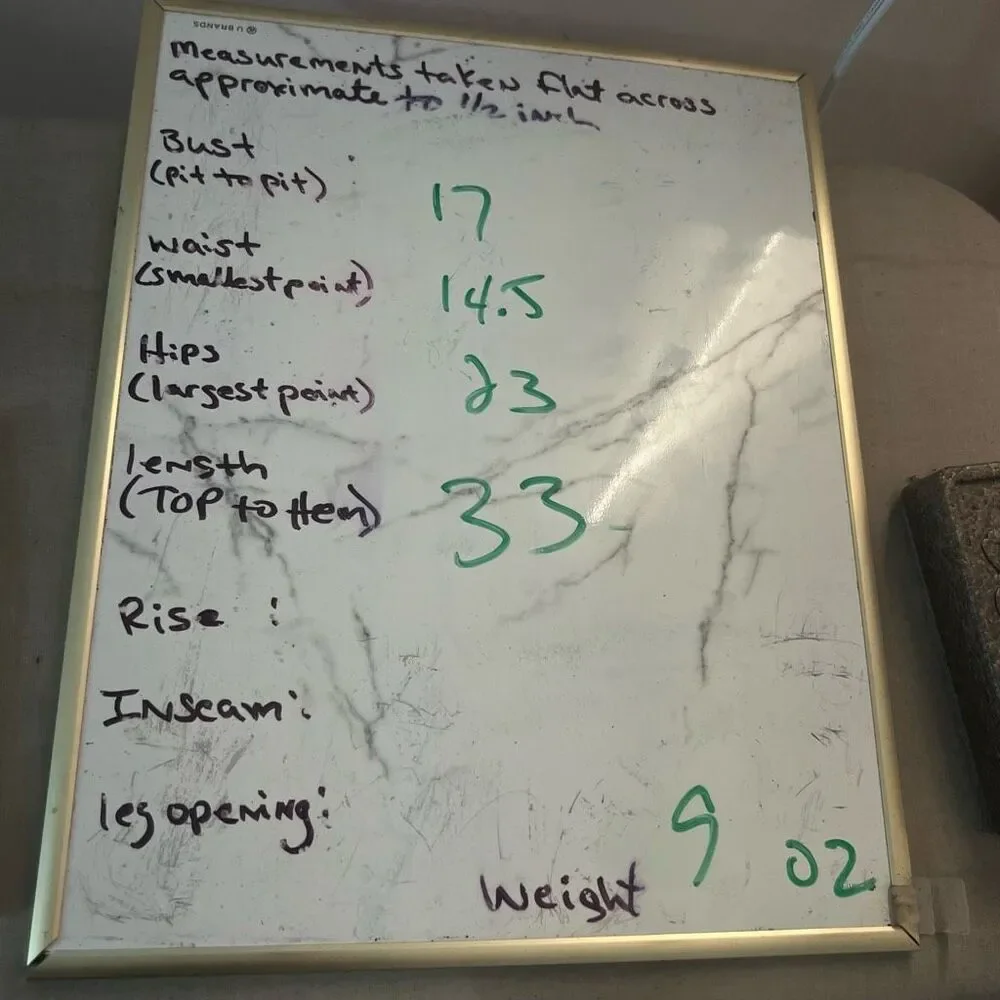 U BRANDS
Measurements taken flat across
approximate to 1/2 inch
Bust
(pit to pit) 17
waist
(smallest point) 14.5
Hips
(largest point) 23
length
(TOP to Hem) 33
Rise :
Inseam :
leg opening :
9 oz
Weight